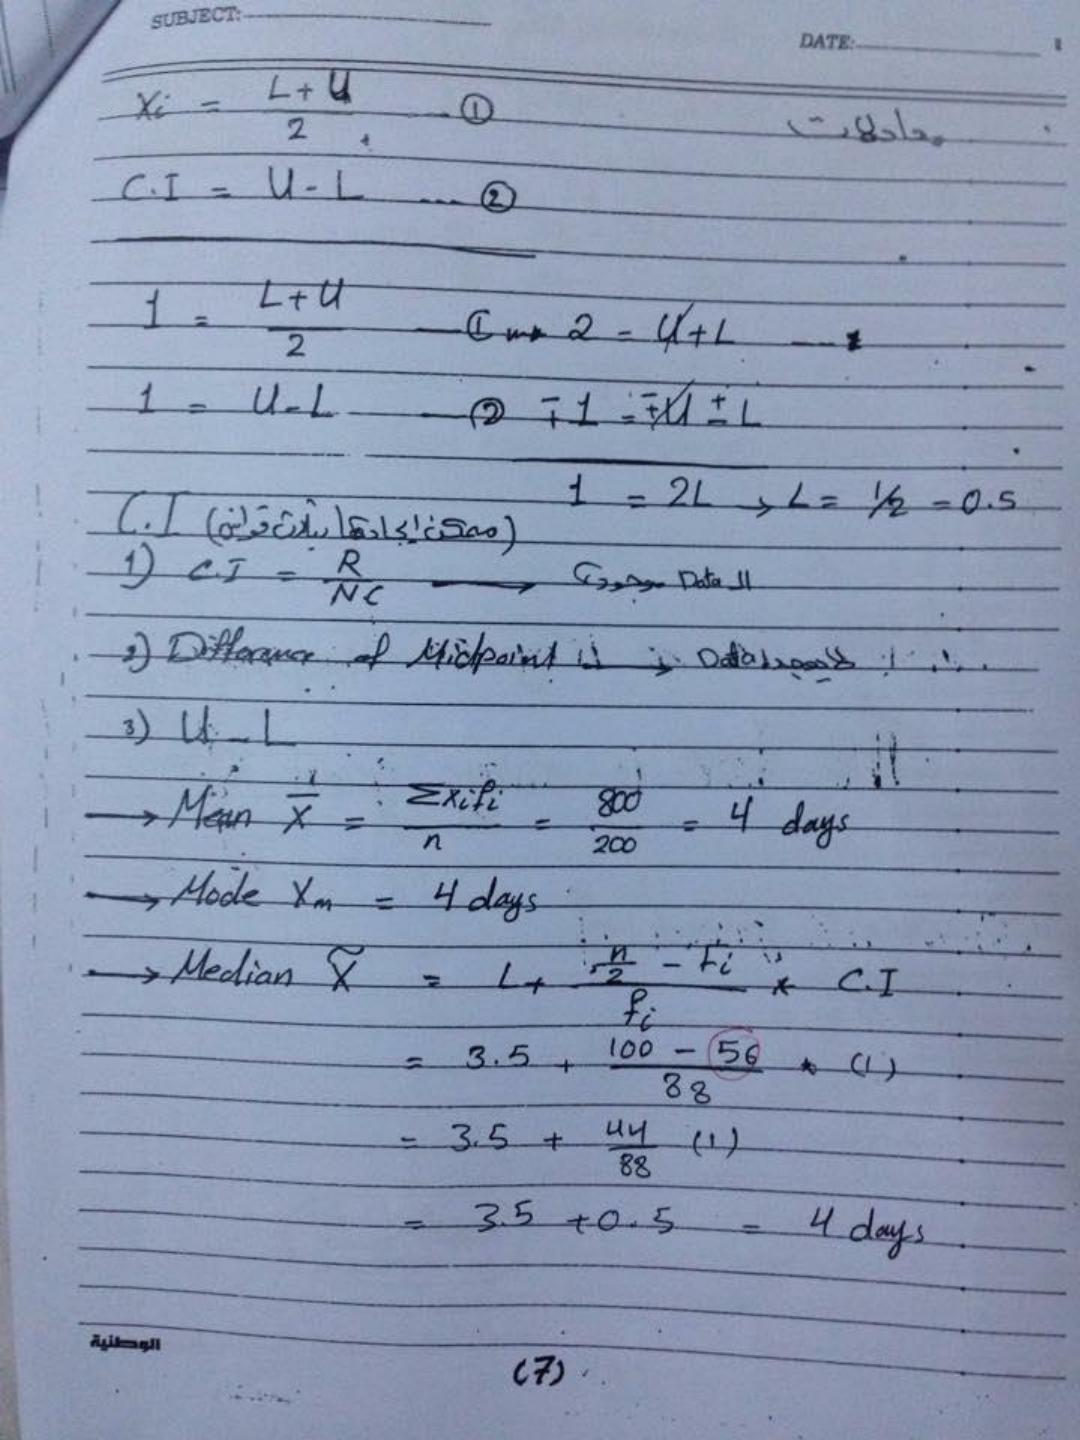 SUBJECT:
DATE:
Xi = L+U / 2 ---- ①
معادلات
C.I = U - L ---- ②
1 = L+U / 2 —— ① → 2 = U+L ----
1 = U-L —— ② ∓1 = ∓U ± L
1 = 2L → L = 1/2 = 0.5
C.I (ممكن إيجادها بثلاث قوانين)
1) C.I = R / NC → الـ Data موجودة
2) Difference of Midpoint → Data
3) U - L
→ Mean X̄ = Σxifi / n = 800 / 200 = 4 days
→ Mode Xm = 4 days
→ Median X̃ = L + (n/2 - Fi) / fi * C.I
= 3.5 + (100 - 56) / 88 * (1)
= 3.5 + 44 / 88 (1)
= 3.5 + 0.5 = 4 days
الوطنية
(7)